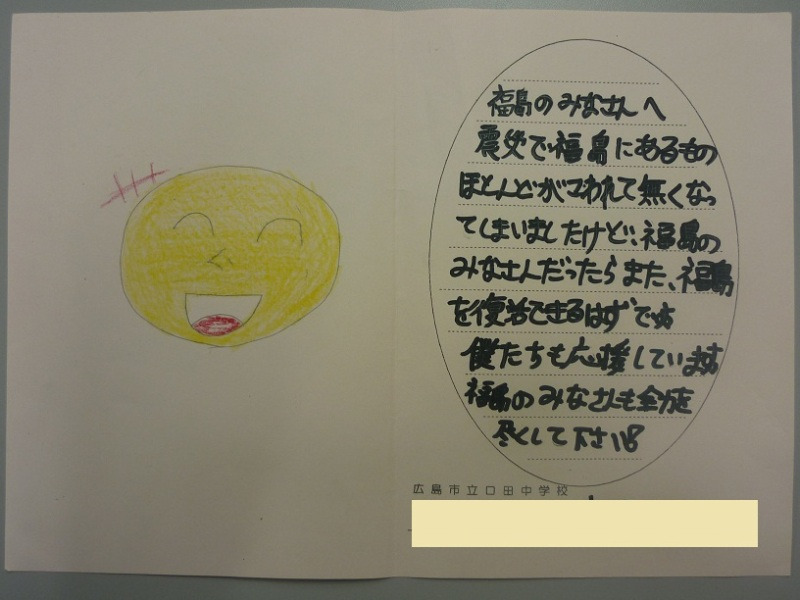 福島のみなさんへ
震災で福島にあるもの
ほとんどがこわれて無くなっ
てしまいましたけど、福島の
みなさんだったらまた、福島
を復活できるはずです
僕たちも応援しています
福島のみなさんも全力を
尽くして下さい!!
広島市立口田中学校